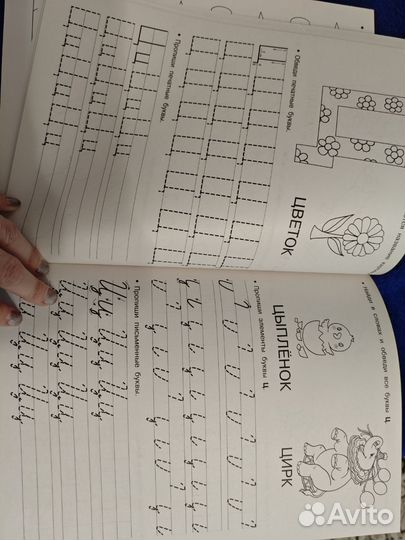 название
ЦВЕТОК
• Обведи печатные буквы.
• Пропиши печатные буквы.
• Найди в словах и обведи все буквы Ц.
ЦЫПЛЁНОК ЦИРК
• Пропиши элементы буквы ц.
• Пропиши письменные буквы.
Avito